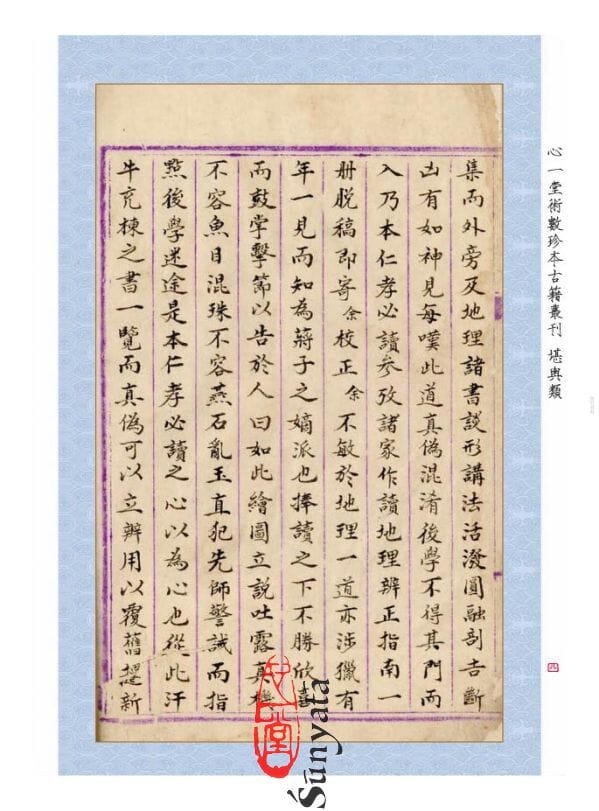 心一堂術數珍本古籍叢刊 堪輿類
集而外旁及地理諸書談形講法活潑圓融剖吉斷
凶有如神見每嘆此道真偽混淆後學不得其門而
入乃本仁孝必讀參攷諸家作讀地理辨正指南一
册脱稿即寄余校正余不敏於地理一道亦涉獵有
年一見而知為蔣子之嫡派也捧讀之下不勝欣喜
而鼓掌擊節以告於人曰如此繪圖立說吐露真機
不容魚目混珠不容燕石亂玉直犯先師警誡而指
點後學迷途是本仁孝必讀之心以為心也從此汗
牛充棟之書一覽而真偽可以立辨用以覆舊新
四
心一堂
Śūnyata